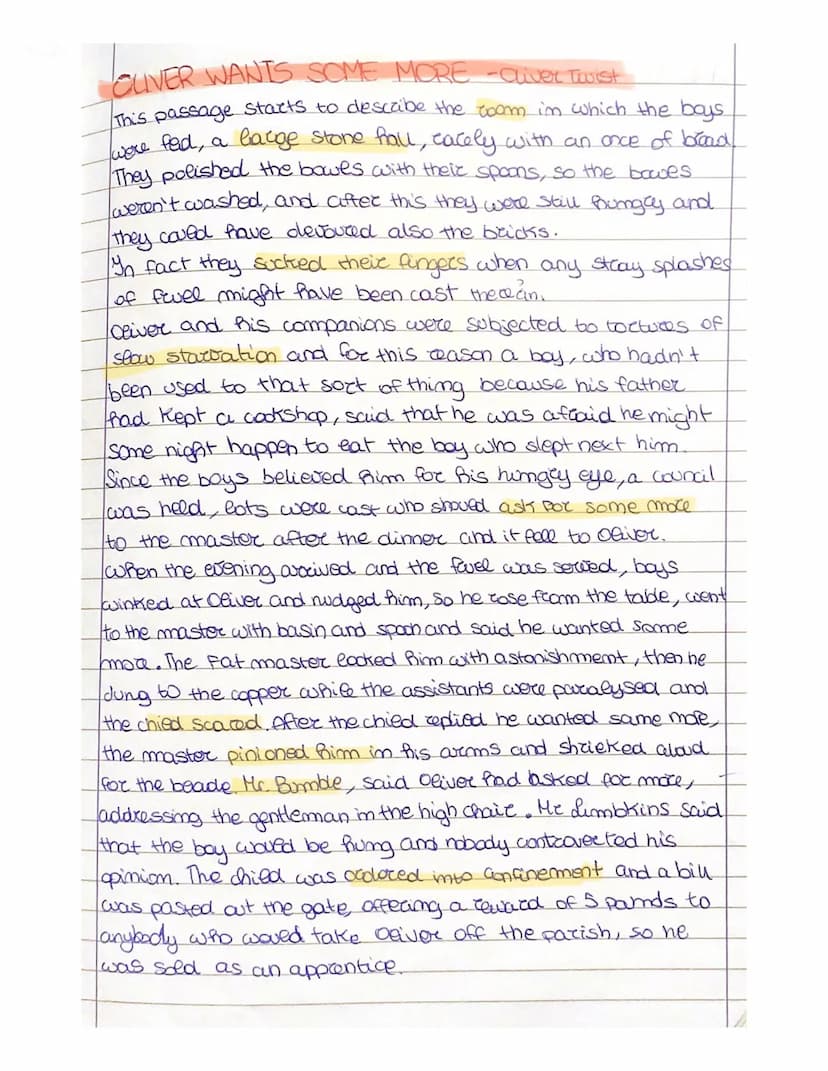 OLIVER WANTS SOME MORE - Oliver Twist
This passage starts to describe the room in which the boys
were fed, a large stone hall, rarely with an once of bread.
They polished the bowls with their spoons, so the bowls
weren't washed, and after this they were still hungry and
they could have devoured also the bricks.
In fact they sucked their fingers when any stray splashes
of fruel might have been cast
Oliver and his companions were subjected to tortures of
slow starvation and for this reason a boy, who hadn't
been used to that sort of thing because his father
had kept a cookshop, said that he was afraid he might
some night happen to eat the boy who slept next him.
Since the boys believed him for his hungry eye, a council
was held, lots were cast who should ask for some more
to the master after the dinner and it fell to Oliver.
When the evening arrived and the fruel was served, boys
winked at Oliver and nudged him, so he rose from the table, went
to the master with basin and spoon and said he wanted some
more. The fat master looked him with astonishment, then he
clung to the copper while the assistants were paralysed and
the chied scared. After the chied replied he wanted some more,
the master pinioned him in his arms and shrieked aloud
for the beadle Mr. Bumble, said Oliver had asked for more,
addressing the gentleman in the high chair. Mr Limbkins said
that the boy would be hung and nobody controverted his
opinion. The child was ordered into confinement and a bill
was pasted out the gate, offering a reward of 5 pounds to
anybody who would take Oliver off the parish, so he
was sold as an apprentice.